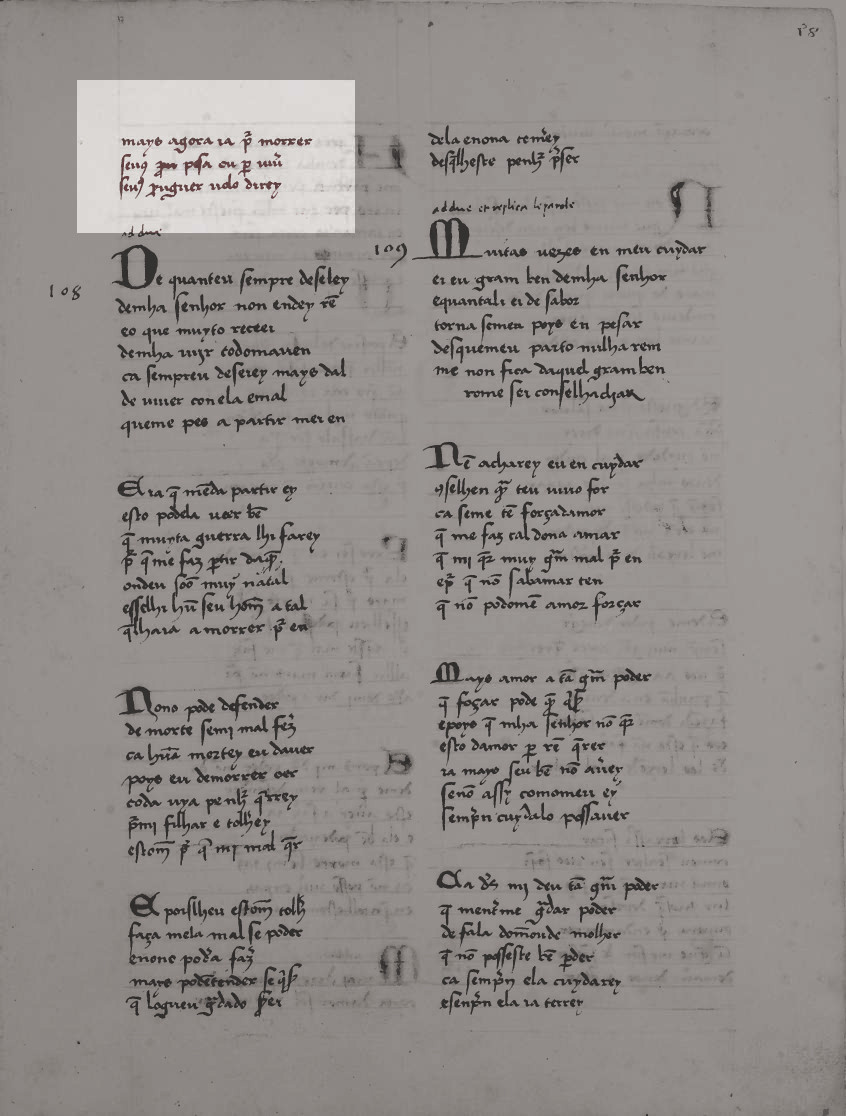 mays agora ia p̃ morrer
seu9 pesa ou ꝑ uiũ
seu9 ꝓuguer uolo direy
ad due
108
De quanteu sempre deseiey
demha senhor non endey rẽ
eo que muyto receei
demha uĩjr todomauen
ca sempreu deseiey mays dal
de uiuer con ela emal
queme pes a partir mei en
E ia q̃ mẽda partir ey
esto podela ueer bẽ
q̃ muyta guerra lhi farey
p̃ q̃ me faz ꝑtir daq̃
ondeu soo muy natal
esselhi hũ seu homẽ a tal
q̃lhaia a morrer p̃ en
Nono pode defender
de morte semi mal fez
ca hũa mortey eu dauer
poys eu demorrer oer
toda uya penh q̃rrey
p̃mi filhar e tolhey
estom p̃ q̃ mj mal q̃r
E poislheu estom tolh
faça mela mal se poder
enone podã faz
mays podentender se
q̃ logreu gdado ser
dela enona temey
desq̃lheste penh p̃ser
ad due et replica le parole
109
Muitas uezes en meu cuydar
ei eu gram ben demha senhor
equantali ei de sabor
torna semeu poys en pesar
desquemeu parto nulha rem
me non fica daquel gram ben
rome sei conselhachar
Nẽ acharey eu en cuydar
9selhen q̃ teu uiuo for
ca seme tẽ forçadamor
q̃ me faz cal dona amar
q̃ mi q̃r muy g̃m mal p̃ en
q̃ nõ sabamar ten
q̃ nõ podomẽ amor forçar
Mays amor a tã g̃m poder
q̃ foçar pode
epoys q̃ mha senhor nõ q̃r
esto damor ꝑ rẽ q̃rer
ia mays seu bẽ nõ auerey
senõ assy comomeu ey
sempñ cuydalo possauer
Ca d̃s mi deu tã g̃m poder
q̃ mentme gdar poder
de fala domonde molher
q̃ nõ possesse bẽ ꝑder
ca sempñ ela cuydarey
esenpñ ela ia terrey